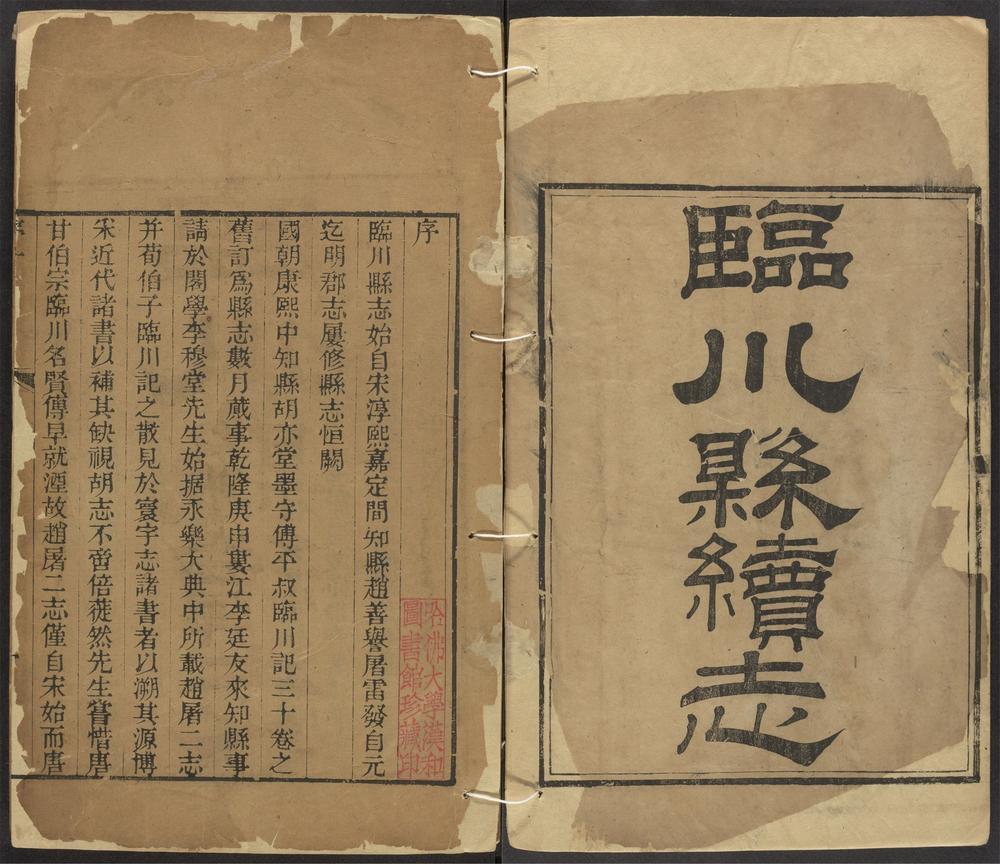 臨川縣續志
序
臨川縣志始自宋淳熙嘉定間知縣趙善譽屠雷發自元
迄明郡志屢修縣志恒闕
國朝康熙中知縣胡亦堂墨守傅平叔臨川記三十卷之
舊訂爲縣志數月蕆事乾隆庚申婁江李廷友來知縣事
請於閣學李穆堂先生始据永樂大典中所載趙屠二志
并荀伯子臨川記之散見於寰宇志諸書者以溯其源博
采近代諸書以補其缺視胡志不啻倍蓰然先生嘗惜唐
甘伯宗臨川名賢傳早就湮故趙屠二志僅自宋始而唐
哈佛大學漢和
圖書館珍藏印